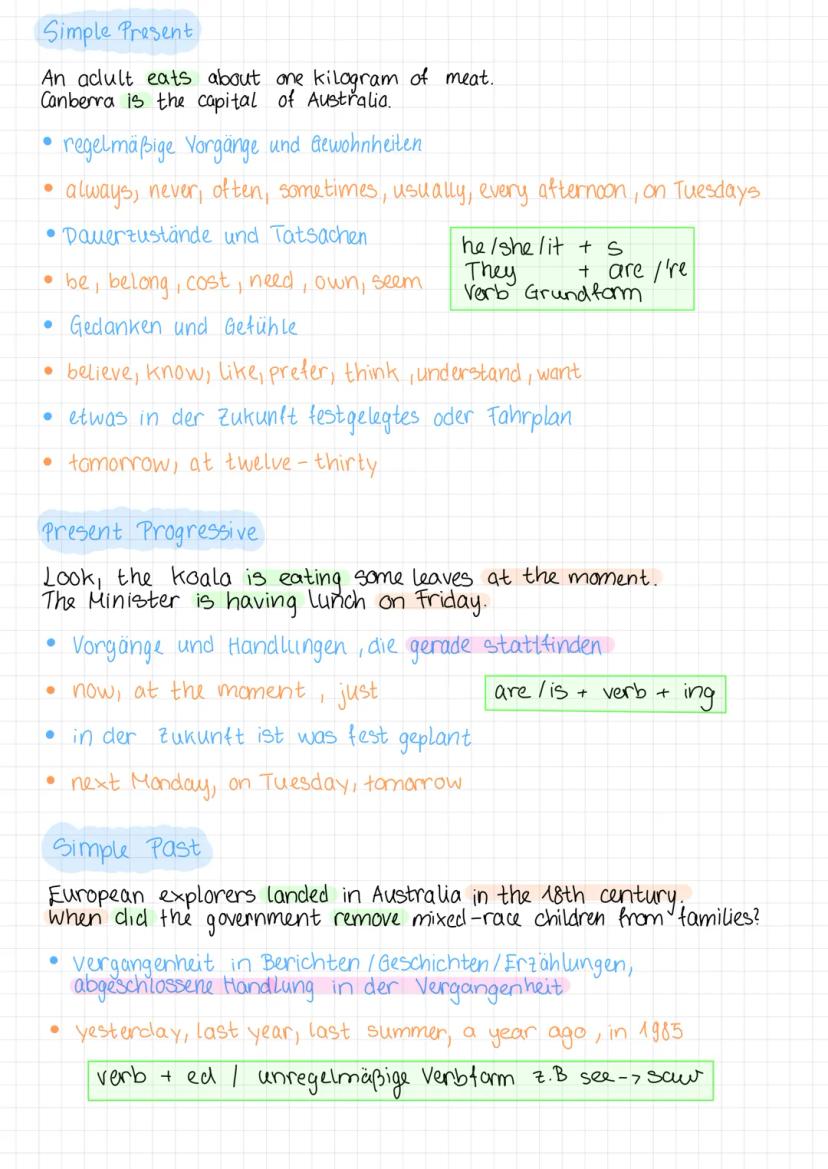 Simple Present
An adult eats about one kilogram of meat.
Canberra is the capital of Australia.
• regelmäßige Vorgänge und Gewohnheiten
• always, never, often, sometimes, usually, every afternoon, on Tuesdays
• Dauerzustände und Tatsachen
he/she/it + s
They + are /'re
Verb Grundform
• be, belong, cost, need, own, seem
• Gedanken und Gefühle
• believe, know, like, prefer, think, understand, want
• etwas in der Zukunft festgelegtes oder Fahrplan
• tomorrow, at twelve-thirty
Present Progressive
Look, the koala is eating some leaves at the moment.
The Minister is having lunch on Friday.
• Vorgänge und Handlungen, die gerade stattfinden
• now, at the moment, just
are/is + verb + ing
• in der Zukunft ist was fest geplant
• next Monday, on Tuesday, tomorrow
Simple Past
European explorers landed in Australia in the 18th century.
When did the government remove mixed-race children from families?
• Vergangenheit in Berichten/Geschichten/Erzählungen,
abgeschlossene Handlung in der Vergangenheit
• yesterday, last year, last summer, a year ago, in 1985
verb + ed / unregelmäßige Verbform z.B see-> saw